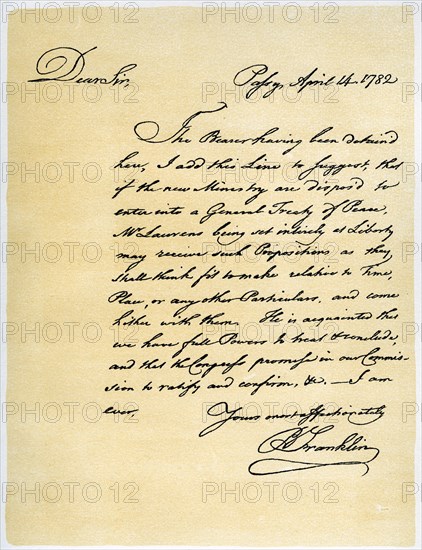 Dear Sir, Passy, April 14. 1782
The Bearer having been detain'd
here, I add this Line to suggest, that
if the new Ministry are dispos'd to
enter into a General Treaty of Peace,
Mr Laurens being set intirely at Liberty
may receive such Propositions as they
shall think fit to make relative to Time,
Place, or any other Particulars, and come
hither with them. He is acquainted that
we have full Powers to treat & conclude,
and that the Congress promise in our Commis-
sion to ratify and confirm, &c. — I am
ever,
Yours most affectionately
B Franklin
PHOTO12